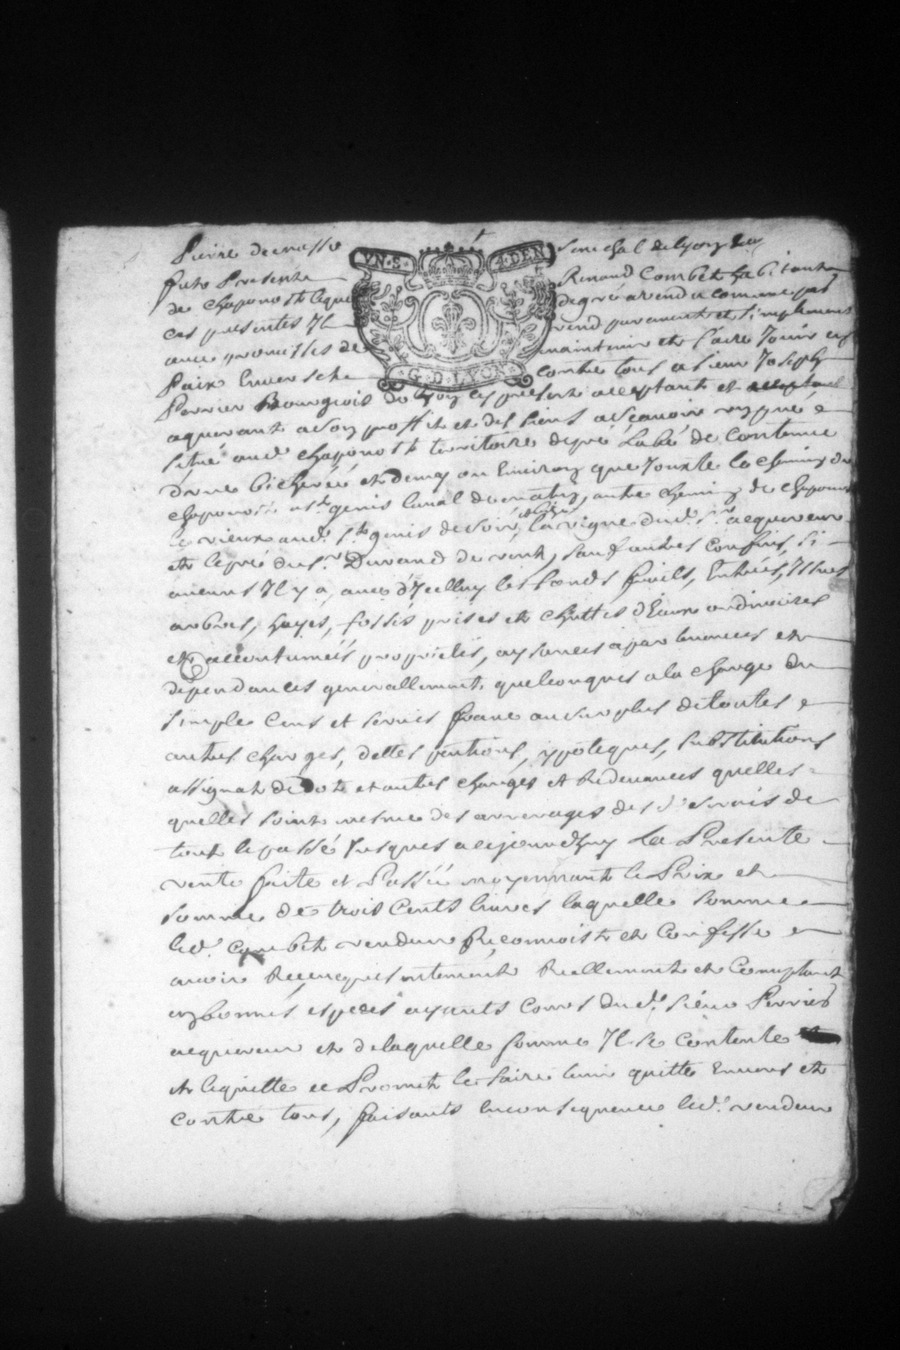 Pierre de masso Senechal de Lyon &ca
fut Presente Renaud Combet habitant
de chaponost lequel de gré a vendu comme par
ces presentes Il vend purement et simplement
avec promesses de maintenir et faire Jouir en
Paix Envers et contre tous a sieur Joseph
Perrier Bourgeois de Lyon cy present acceptant et
aquerant a son proffit et des siens asscavoir un pré
situé aud. chaponost territoire de pré Labé de Contenue
d'une bicherée et demy ou Environ que Jouxte le chemin de
chaponost a st. genis Laval de matin, autre chemin de chaponost
le vieux aud. st. genis de soir, la vigne dud. sr. acquereur
et le pré du sr. Durand de vent, sauf autres confins si
aucuns Il y a, avec d'Icelluy les fonds fruits, Entrées, Issues
arbres, hayes, fossés prises et chuttes d'Eaux ordinaires
et accoutumées proprietés, aysances apartenances et
dépendances generallement quelconques a la charge du
simple Cens et servis franc au surplus de toutes
autres charges, dettes pentions, ippoteques, substitutions
assignat de Dot et autres charges et Redevances quelles
quelles soint mesme des arrerages des d. servis de
tout le passé Jusques a cejourdhuy La Presente
vente faite et Passée moyennant le Prix et
somme de trois Cents livres laquelle somme
led. Combet vendeur Reconnoist et Confesse
avoir Receu presentement Réellement et Comptant
en bonnes especes ayants cours dud. sieur Perrier
acquereur et de laquelle somme Il se Contente
et le quitte et Promet le faire tenir quitte Envers et
contre tous, faisants En consequence led. vendeur
VN·S· 4·DEN
G·D·LYON